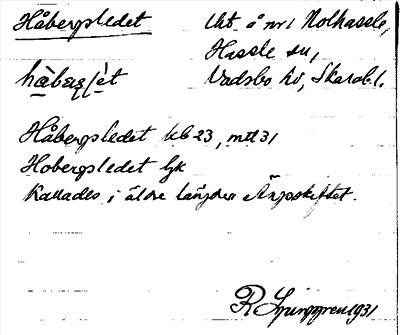 Håbergsledet Urt å nr 1 Nolhassle,
Hassle sn,
Vadsbo hd, Skarab.l.
Håbergsledet kb 23, mtl 31
Hobergsledet ljk
Kallades i äldre längder Ängsskiftet.
R Ljunggren 1931